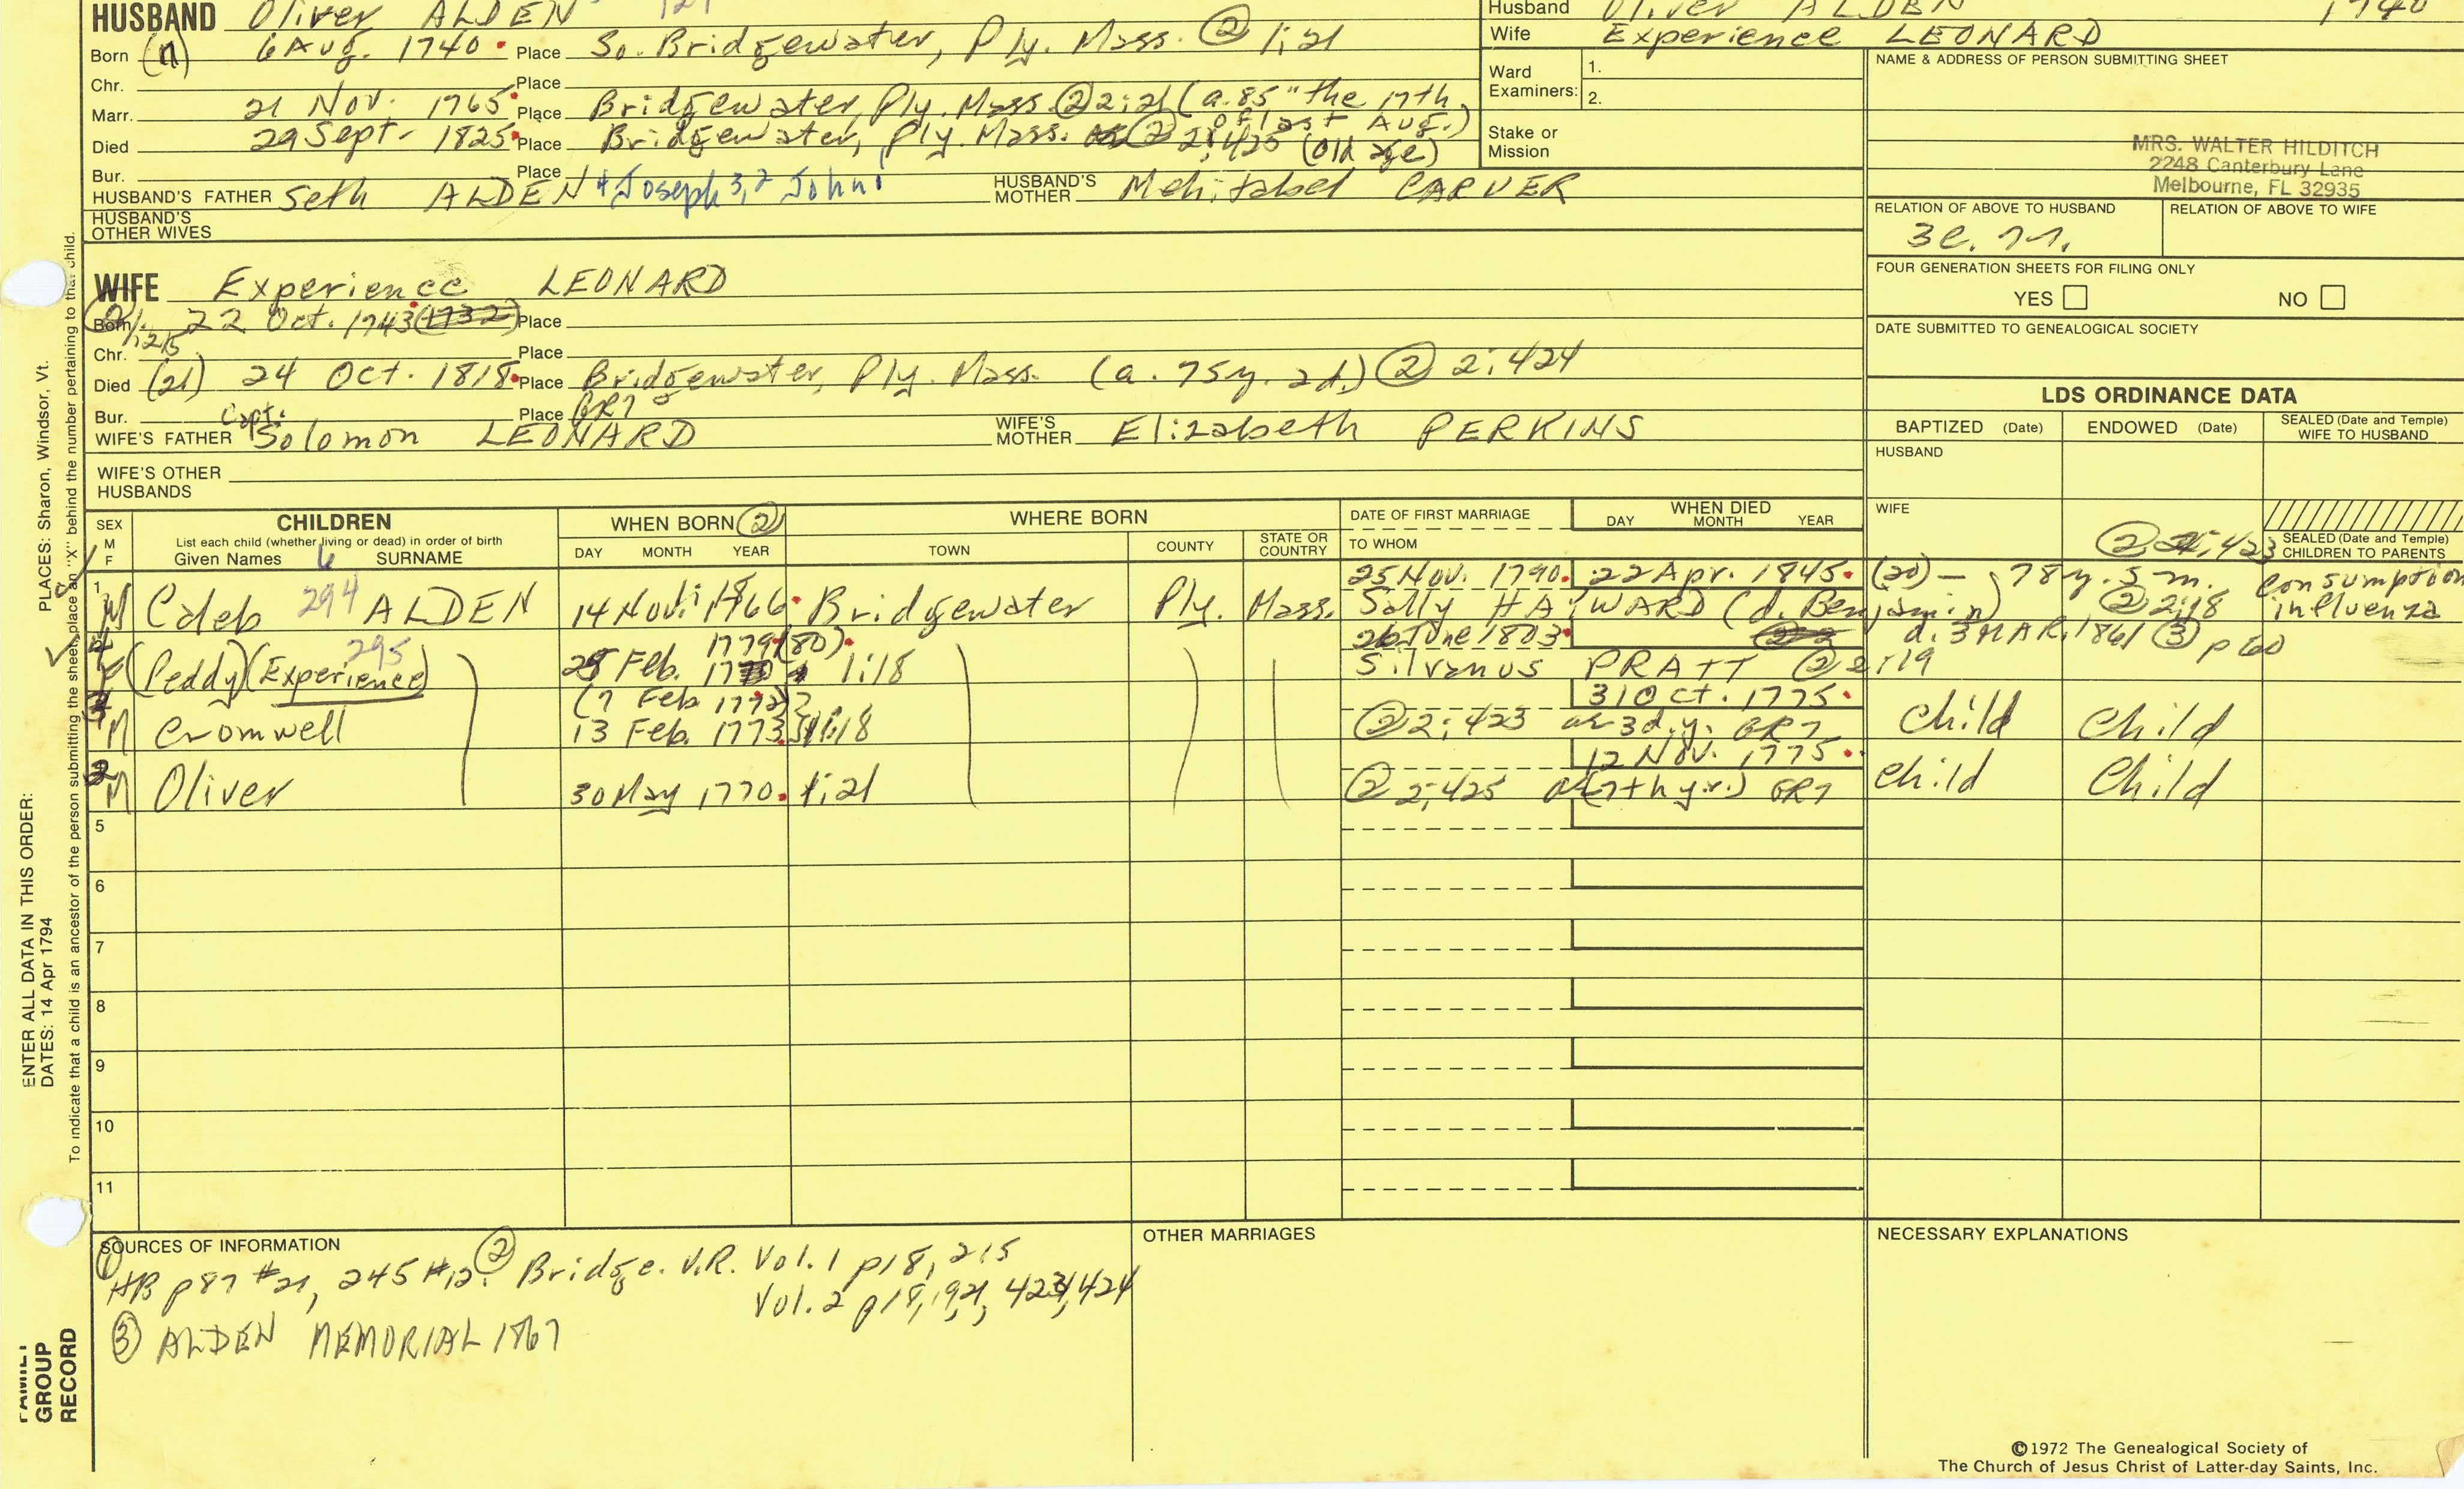 HUSBAND Oliver ALDEN
Born (n) 6 Aug. 1740 Place So. Bridgewater, Ply. Mass. ② 1:21
Chr. Place
Marr. 21 Nov. 1765 Place Bridgewater, Ply. Mass. ② 2:21 (a. 85 "the 17th
of last Aug.)
Died 29 Sept. 1825 Place Bridgewater, Ply. Mass. ② 2:425 (old age)
Bur. Place
HUSBAND'S FATHER Seth ALDEN 4 Joseph 3,2 John 1 HUSBAND'S MOTHER Mehitabel CARVER
HUSBAND'S OTHER WIVES
Husband Oliver ALDEN 1740
Wife Experience LEONARD
Ward Examiners: 1.
2.
Stake or Mission
NAME & ADDRESS OF PERSON SUBMITTING SHEET
MRS. WALTER HILDITCH
2248 Canterbury Lane
Melbourne, FL 32935
RELATION OF ABOVE TO HUSBAND RELATION OF ABOVE TO WIFE
FOUR GENERATION SHEETS FOR FILING ONLY
YES NO
DATE SUBMITTED TO GENEALOGICAL SOCIETY
WIFE Experience LEONARD
Born 22 Oct. 1743 (1732) Place
Chr. Place
Died (21) 24 Oct. 1818 Place Bridgewater, Ply. Mass. (a. 75y. 2d.) ② 2:424
Bur. Place GR7
WIFE'S FATHER Capt. Solomon LEONARD WIFE'S MOTHER Elizabeth PERKINS
WIFE'S OTHER HUSBANDS
LDS ORDINANCE DATA
BAPTIZED (Date) ENDOWED (Date) SEALED (Date and Temple) WIFE TO HUSBAND
HUSBAND
WIFE
SEALED (Date and Temple) CHILDREN TO PARENTS
SEX M F
CHILDREN
List each child (whether living or dead) in order of birth
Given Names SURNAME
WHEN BORN ②
DAY MONTH YEAR
WHERE BORN
TOWN COUNTY STATE OR COUNTRY
DATE OF FIRST MARRIAGE
TO WHOM
WHEN DIED
DAY MONTH YEAR
1 M Caleb 294 ALDEN 14 Nov. 1766 1:18 Bridgewater Ply. Mass. 25 Nov. 1790 22 Apr. 1845 (20) 78 y. 5 m. Consumption
Sally HAYWARD (d. Benjamin) ② 2:18 influenza
F (Peddy) (Experience) 295 28 Feb. 1779 (80) 1:18 26 June 1803 d. 3 MAR. 1861 ③ p 60
Silvanus PRATT ② 2:19
3 M Cromwell (7 Feb 1772)? 31 Oct. 1775
13 Feb. 1773 1:18 ② 2:423 GR7 Child Child
2 M Oliver 12 Nov. 1775
30 May 1770 1:21 ② 2:425 (7th yr.) GR7 Child Child
5
6
7
8
9
10
11
SOURCES OF INFORMATION
① HB p87 #21, 245 #12. ② Bridge. V.R. Vol. 1 p18, 215
Vol. 2 p18, 424
③ ALDEN MEMORIAL 1867
OTHER MARRIAGES
NECESSARY EXPLANATIONS
©1972 The Genealogical Society of
The Church of Jesus Christ of Latter-day Saints, Inc.
PLACES: Sharon, Windsor, Vt.
To indicate that a child is an ancestor of the person submitting the sheet, place an "X" behind the number pertaining to that child.
ENTER ALL DATA IN THIS ORDER:
DATES: 14 Apr 1794
FAMILY
GROUP
RECORD